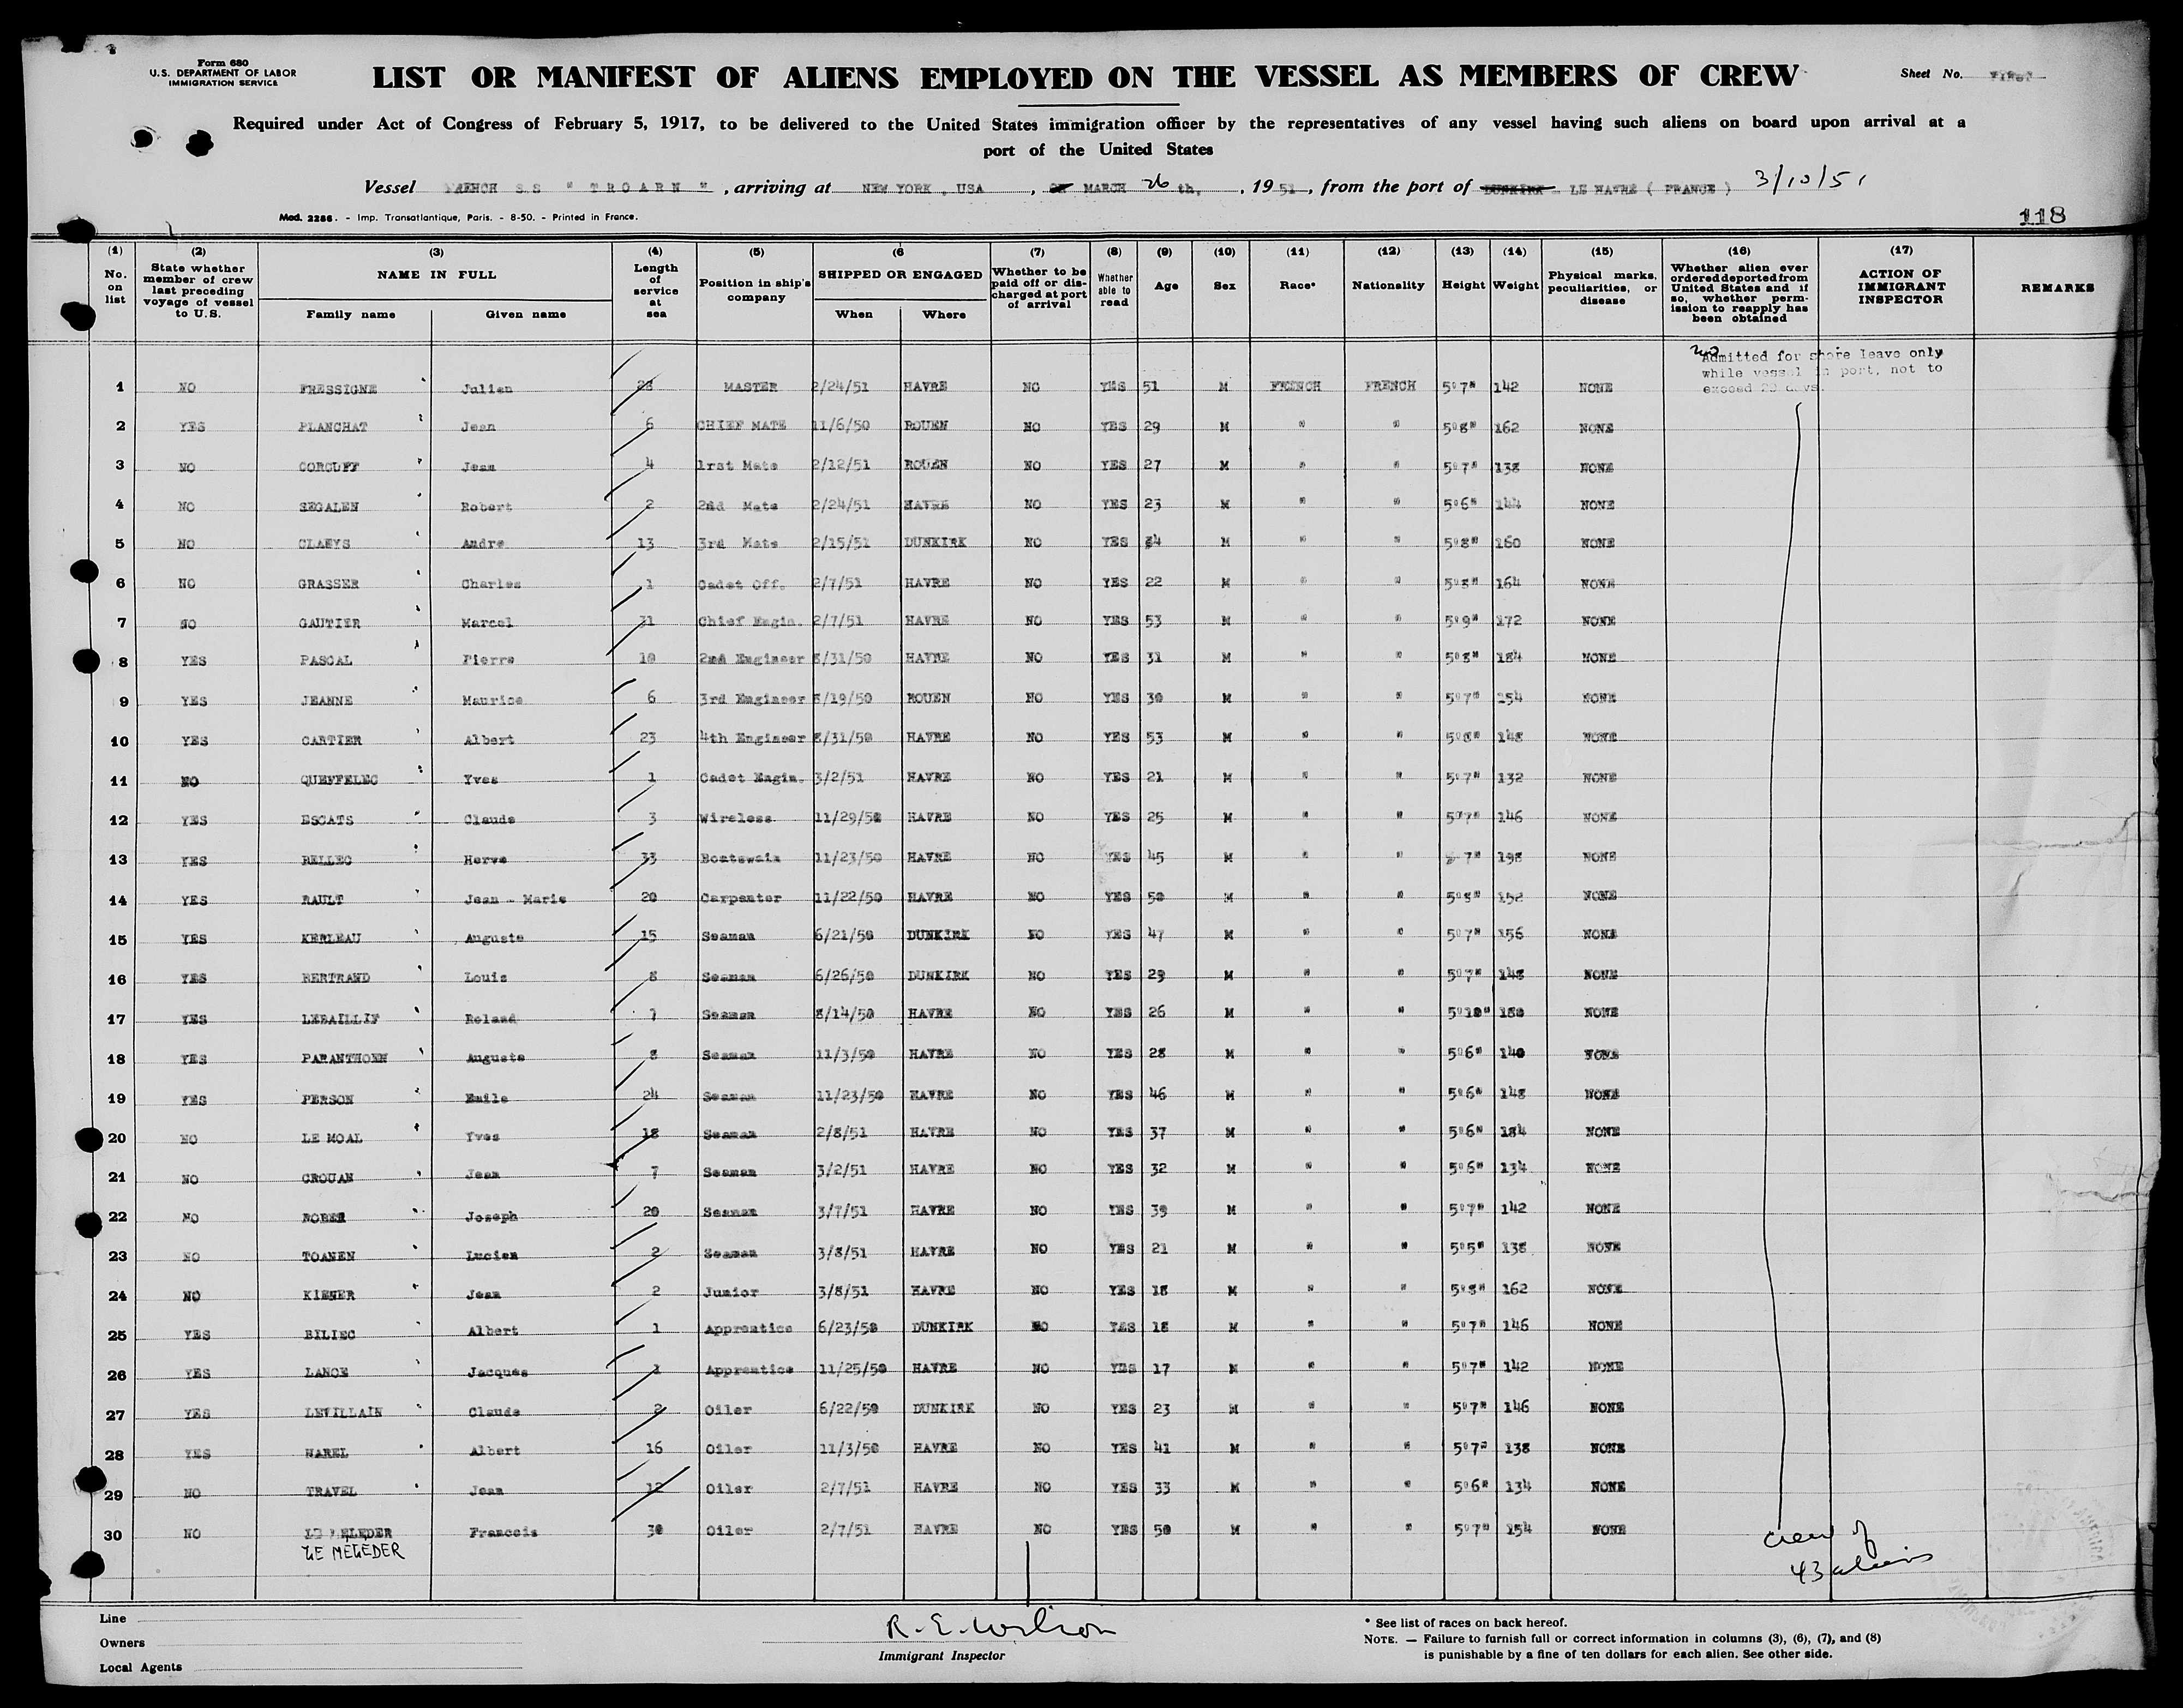 Form 680
U.S. DEPARTMENT OF LABOR
IMMIGRATION SERVICE
LIST OR MANIFEST OF ALIENS EMPLOYED ON THE VESSEL AS MEMBERS OF CREW
Sheet No. FIRST
Required under Act of Congress of February 5, 1917, to be delivered to the United States immigration officer by the representatives of any vessel having such aliens on board upon arrival at a
port of the United States
Vessel FRENCH S S " T R O A R N " , arriving at NEW YORK , USA , MARCH 26 th, , 19 51 , from the port of DUNKIRK LE HAVRE ( FRANCE ) 3/10/51
Mod. 2286. - Imp. Transatlantique, Paris. - 8-50. - Printed in France.
118
(1) No. on list
(2) State whether member of crew last preceding voyage of vessel to U.S.
(3) NAME IN FULL Family name Given name
(4) Length of service at sea
(5) Position in ship's company
(6 SHIPPED OR ENGAGED When Where
(7) Whether to be paid off or discharged at port of arrival
(8) Whether able to read
(9) Age
(10) Sex
(11) Race*
(12) Nationality
(13) Height
(14) Weight
(15) Physical marks, peculiarities, or disease
(16) Whether alien ever ordered deported from United States and if so, whether permission to reapply has been obtained
(17) ACTION OF IMMIGRANT INSPECTOR
REMARKS
no
Admitted for shore leave only
while vessel in port, not to
exceed 29 days.
1 NO FRESSIGNE Julien 28 MASTER 2/24/51 HAVRE NO YES 51 M FRENCH FRENCH 5°7" 142 NONE
2 YES PLANCHAT Jean 6 CHIEF MATE 11/6/50 ROUEN NO YES 29 M " " 5°8" 162 NONE
3 NO CORCUFF Jean 4 1rst Mate 2/12/51 ROUEN NO YES 27 M " " 5°7" 138 NONE
4 NO SEGALEN Robert 2 2nd Mate 2/24/51 HAVRE NO YES 23 M " " 5°6" 144 NONE
5 NO CLAEYS Andre 13 3rd Mate 2/15/51 DUNKIRK NO YES 34 M " " 5°8" 160 NONE
6 NO GRASSER Charles 1 Cadet Off. 2/7/51 HAVRE NO YES 22 M " " 5°8" 164 NONE
7 NO GAUTIER Marcel 31 Chief Engin. 2/7/51 HAVRE NO YES 53 M " " 5°9" 172 NONE
8 YES PASCAL Pierre 10 2nd Engineer 8/31/50 HAVRE NO YES 31 M " " 5°8" 184 NONE
9 YES JEANNE Maurice 6 3rd Engineer 8/19/50 ROUEN NO YES 30 M " " 5°7" 154 NONE
10 YES CARTIER Albert 23 4th Engineer 8/31/50 HAVRE NO YES 53 M " " 5°8" 148 NONE
11 NO QUEFFELEC Yves 1 Cadet Engin. 3/2/51 HAVRE NO YES 21 M " " 5°7" 132 NONE
12 YES ESCATS Claude 3 Wireless 11/29/50 HAVRE NO YES 25 M " " 5°7" 146 NONE
13 YES RELLEC Herve 33 Boatswain 11/23/50 HAVRE NO YES 45 M " " 7" 198 NONE
14 YES RAULT Jean - Marie 20 Carpenter 11/22/50 HAVRE NO YES 50 M " " 5°8" 152 NONE
15 YES KERLEAU Auguste 15 Seaman 6/21/50 DUNKIRK NO YES 47 M " " 5°7" 156 NONE
16 YES BERTRAND Louis 8 Seaman 6/26/50 DUNKIRK NO YES 29 M " " 5°7" 148 NONE
17 YES LEBAILLIF Roland 7 Seaman 8/14/50 HAVRE NO YES 26 M " " 5°10" 180 NONE
18 YES PARANTHOEN Auguste 8 Seaman 11/3/50 HAVRE NO YES 28 M " " 5°6" 140 NONE
19 YES PERSON Emile 24 Seaman 11/23/50 HAVRE NO YES 46 M " " 5°6" 148 NONE
20 NO LE MOAL Yves 18 Seaman 2/8/51 HAVRE NO YES 37 M " " 5°6" 184 NONE
21 NO CROUAN Jean 7 Seaman 3/2/51 HAVRE NO YES 32 M " " 5°6" 134 NONE
22 NO Joseph 20 Seaman 3/7/51 HAVRE NO YES 39 M " " 5°7" 142 NONE
23 NO TOANEN Lucien 2 Seaman 3/8/51 HAVRE NO YES 21 M " " 5°5" 138 NONE
24 NO KIENER Jean 2 Junior 3/8/51 HAVRE NO YES 18 M " " 5°8" 162 NONE
25 YES BILIEC Albert 1 Apprentice 6/23/50 DUNKIRK NO YES 18 M " " 5°7" 146 NONE
26 YES LANCE Jacques 1 Apprentice 11/25/50 HAVRE NO YES 17 M " " 5°7" 142 NONE
27 YES LEVILLAIN Claude 2 Oiler 6/22/50 DUNKIRK NO YES 23 M " " 5°7" 146 NONE
28 YES HAREL Albert 16 Oiler 11/3/50 HAVRE NO YES 41 M " " 5°7" 138 NONE
29 NO TRAVEL Jean 12 Oiler 2/7/51 HAVRE NO YES 33 M " " 5°6" 134 NONE
30 NO LE MELEDER Francois 30 Oiler 2/7/51 HAVRE NO YES 50 M " " 5°7" 154 NONE
LE MELEDER
crew of
43 aliens
Line
Owners
Local Agents
R. E. Wilson
Immigrant Inspector
* See list of races on back hereof.
NOTE. — Failure to furnish full or correct information in columns (3), (6), (7), and (8)
is punishable by a fine of ten dollars for each alien. See other side.